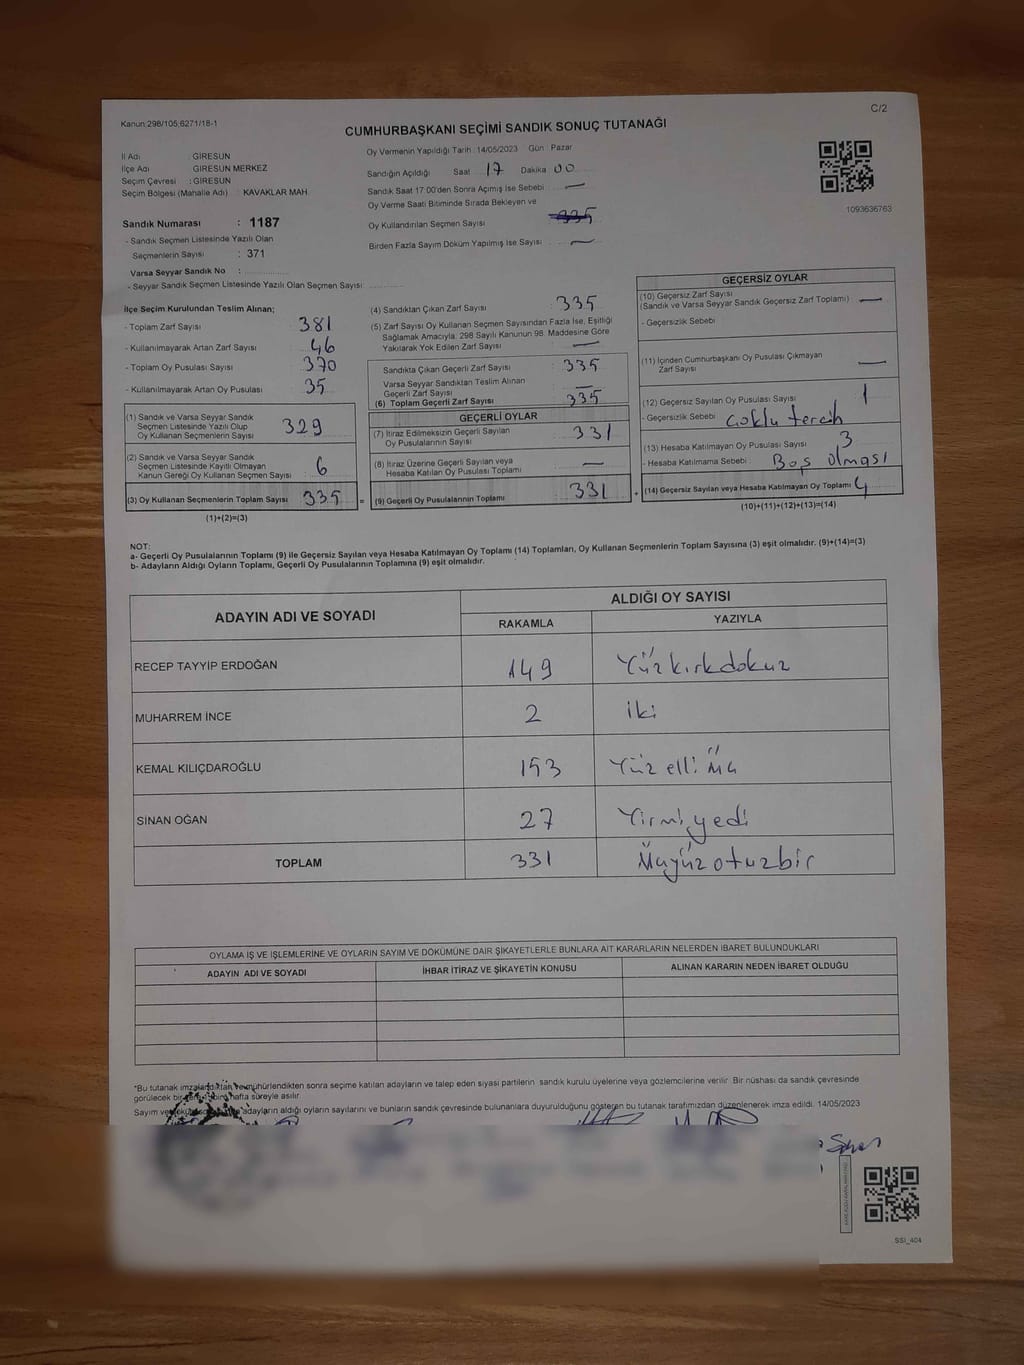 C/2
Kanun:298/105;6271/18-1
CUMHURBAŞKANI SEÇİMİ SANDIK SONUÇ TUTANAĞI
İl Adı : GİRESUN
İlçe Adı : GİRESUN MERKEZ
Seçim Çevresi : GİRESUN
Seçim Bölgesi (Mahalle Adı) : KAVAKLAR MAH.
Sandık Numarası : 1187
- Sandık Seçmen Listesinde Yazılı Olan
Seçmenlerin Sayısı : 371
Varsa Seyyar Sandık No :
- Seyyar Sandık Seçmen Listesinde Yazılı Olan Seçmen Sayısı:
Oy Vermenin Yapıldığı Tarih : 14/05/2023 Gün : Pazar
Sandığın Açıldığı Saat 17 Dakika 00
Sandık Saat 17:00'den Sonra Açımış İse Sebebi : —
Oy Verme Saati Bitiminde Sırada Bekleyen ve
Oy Kullandırılan Seçmen Sayısı 335
Birden Fazla Sayım Döküm Yapılmış İse Sayısı : —
1093636763
İlçe Seçim Kurulundan Teslim Alınan;
- Toplam Zarf Sayısı : 381
- Kullanılmayarak Artan Zarf Sayısı : 46
- Toplam Oy Pusulası Sayısı : 370
- Kullanılmayarak Artan Oy Pusulası : 35
(1) Sandık ve Varsa Seyyar Sandık
Seçmen Listesinde Yazılı Olup
Oy Kullanan Seçmenlerin Sayısı 329
(2) Sandık ve Varsa Seyyar Sandık
Seçmen Listesinde Kayıtlı Olmayan
Kanun Gereği Oy Kullanan Seçmen Sayısı 6
(3) Oy Kullanan Seçmenlerin Toplam Sayısı 335 =
(1)+(2)=(3)
(4) Sandıktan Çıkan Zarf Sayısı : 335
(5) Zarf Sayısı Oy Kullanan Seçmen Sayısından Fazla İse, Eşitliği
Sağlamak Amacıyla; 298 Sayılı Kanunun 98. Maddesine Göre
Yakılarak Yok Edilen Zarf Sayısı : —
Sandıkta Çıkan Geçerli Zarf Sayısı : 335
Varsa Seyyar Sandıktan Teslim Alınan
Geçerli Zarf Sayısı : —
(6) Toplam Geçerli Zarf Sayısı : 335
GEÇERLİ OYLAR
(7) İtiraz Edilmeksizin Geçerli Sayılan
Oy Pusulalarının Sayısı : 331
(8) İtiraz Üzerine Geçerli Sayılan veya
Hesaba Katılan Oy Pusulası Toplamı : —
(9) Geçerli Oy Pusulalarının Toplamı : 331 +
GEÇERSİZ OYLAR
(10) Geçersiz Zarf Sayısı
(Sandık ve Varsa Seyyar Sandık Geçersiz Zarf Toplamı) : —
- Geçersizlik Sebebi :
(11) İçinden Cumhurbaşkanı Oy Pusulası Çıkmayan
Zarf Sayısı : —
(12) Geçersiz Sayılan Oy Pusulası Sayısı : 1
- Geçersizlik Sebebi : çoklu tercih
(13) Hesaba Katılmayan Oy Pusulası Sayısı : 3
- Hesaba Katılmama Sebebi : Boş olması
(14) Geçersiz Sayılan veya Hesaba Katılmayan Oy Toplamı : 4
(10)+(11)+(12)+(13)=(14)
NOT:
a- Geçerli Oy Pusulalarının Toplamı (9) ile Geçersiz Sayılan veya Hesaba Katılmayan Oy Toplamı (14) Toplamları, Oy Kullanan Seçmenlerin Toplam Sayısına (3) eşit olmalıdır. (9)+(14)=(3)
b- Adayların Aldığı Oyların Toplamı, Geçerli Oy Pusulalarının Toplamına (9) eşit olmalıdır.
ADAYIN ADI VE SOYADI ALDIĞI OY SAYISI
RAKAMLA YAZIYLA
RECEP TAYYİP ERDOĞAN 149 Yüzkırkdokuz
MUHARREM İNCE 2 iki
KEMAL KILIÇDAROĞLU 153 Yüz elli üç
SİNAN OĞAN 27 Yirmi yedi
TOPLAM 331 Üçyüzotuzbir
OYLAMA İŞ VE İŞLEMLERİNE VE OYLARIN SAYIM VE DÖKÜMÜNE DAİR ŞİKAYETLERLE BUNLARA AİT KARARLARIN NELERDEN İBARET BULUNDUKLARI
ADAYIN ADI VE SOYADI İHBAR İTİRAZ VE ŞİKAYETİN KONUSU ALINAN KARARIN NEDEN İBARET OLDUĞU
*Bu tutanak imzalandıktan ve mühürlendikten sonra seçime katılan adayların ve talep eden siyasi partilerin sandık kurulu üyelerine veya gözlemcilerine verilir. Bir nüshası da sandık çevresinde
görülecek bir yere bir hafta süreyle asılır.
Sayım ve adayların aldığı oyların sayılarını ve bunların sandık çevresinde bulunanlara duyurulduğunu gösteren bu tutanak tarafımızdan düzenlenerek imza edildi. 14/05/2023
SSİ_404